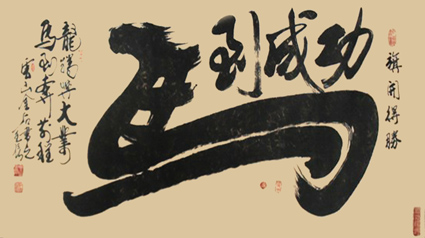 旗開得勝
馬到成功
龍騰興大業
馬到奔前程